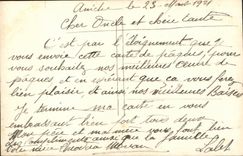 Aniche le 23 Mars 1921
Cher Oncle et chère tante
C'est par l'éloignement que je
vous envoie cette carte de pâques, pour
vous souhaiter nos meilleures vœux de
pâques et en espérant que ca vous fera
bien plaisir et aussi nos meilleures Baisers
Je termine ma carte en vous
embrassant bien fort tous deux
Mon père et ma mère vous font bien
des compliments ainsi que la famille
votre nièce